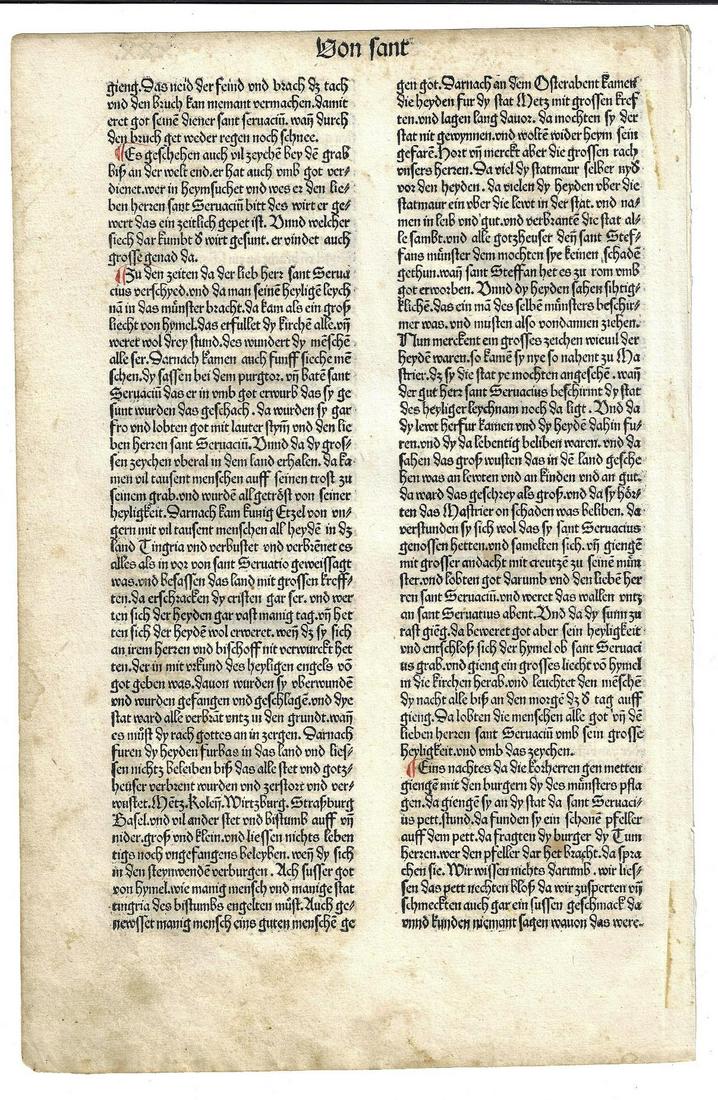 Von sant
gieng.Das neid der feind vnd brach dz tach
vnd den bruch kan niemant vermachen.damit
eret got seinē diener sant seruaciū. wañ durch
den bruch get weder regen noch schnee.
¶Es geschehen auch vil zeychē bey dē grab
biß an der welt end.er hat auch vmb got ver-
dienet.wer in heymsuchet vnd wes er den lie-
ben herren sant Seruaciū bitt des wirt er ge-
wert das ein zeitlich gepet ist. Vnnd welcher
siech dar kumbt d̕ wirt gesunt. er vindet auch
grosse genad da.
¶Zu den zeiten da der lieb herr sant Serua
cius verschyed.vnd da man seinē heyligē leych
nā in das münster bracht.da kam als ein groß
liecht von hymel.das erfullet dy kirchē alle.vñ
weret wol drey stund.des wundert dy mēschē
alle ser.Darnach kamen auch funff sieche mē
schen.dy sassen bei dem purgtor. vñ batē sant
Seruaciū das er in vmb got erwurb das sy ge
sunt wurden das geschach. da wurden sy gar
fro vnd lobten got mit lauter stym̄ vnd den lie
ben herren sant Seruaciū. Vnnd da dy gros-
sen zeychen vberal in dem land erhalen. da ka
men vil tausent menschen auff seinen trost zu
seinem grab.vnd wurdē all getröst von seiner
heyligkeit.Darnach kam kunig Etzel von vn-
gern mit vil tausent menschen all heydē in dz
land Tingria vnd verbustet vnd verbrēnet es
alles als in vor von sant Seruatio geweissagt
was.vnd besassen das land mit grossen kreff-
ten.da erschracken dy cristen gar ser. vnd wer
ten sich der heyden gar vast manig tag.vñ het
ten sich der heydē wol erweret. weñ dz sy sich
an irem herren vnd bischoff nit verwürckt het
ten.der in mit vrkund des heyligen engels vō
got geben was.dauon wurden sy vberwundē
vnd wurden gefangen vnd geschlagē.vnd dye
stat ward alle verbrāt vntz in den grundt.wañ
es müst dy rach gottes an in zergen. Darnach
furen dy heyden furbas in das land vnd lies-
sen nichtz beleiben biß das alle stet vnd gotz-
heüser verbrent wurden vnd zerstort vnd ver-
wustet.Mētz.Kolen̄.Wirtzburg. Straßburg
Basel.vnd vil ander stet vnd bistumb auff vñ
nider.groß vnd klein.vnd liessen nichts leben
tigs noch vngefangens beleyben. weñ dy sich
in den steynwendē verburgen. Ach susser got
von hymel.wie manig mensch vnd manige stat
tungria des bistumbs engelten müst.Auch ge-
newsset manig mensch eins guten menschē ge
gen got.Darnach an dem Osterabent kamen
die heyden fur dy stat Metz mit grossen kref
ten.vnd lagen lang dauor. da mochten sy der
stat nit gewynnen.vnd woltē wider heym sein
gefarē.Hort vñ merckt aber die grossen rach
vnsers herren. Da viel dy statmaur selber nyd
vor den heyden. da vielen dy heyden vber die
statmaur ein vber die lewt in der stat. vnd na-
men in leib vnd gut.vnd verbrantē die stat al-
le sambt.vnd alle gotzheuser den̄ sant Stef-
fans münster dem mochten sye keinen schadē
gethun.wañ sant Steffan het es zu rom vmb
got erworben. Vnnd dy heyden sahen sihtig-
klichē.das ein mā des selbē münsters beschir-
mer was. vnd musten also vondannen ziehen.
Nun merckent ein grosses zeichen wieuil der
heydē waren.so kamē sy nye so nahent zu Ma
strier.dz sy die stat ye mochten angesehē. wañ
der gut herr sant Seruacius beschirmt dy stat
des heyliger leychnam noch da ligt . Vnd da
dy lewt herfur kamen vnd dy heydē dahin fu-
ren.vnd dy da lebentig beliben waren. vnd da
sahen das groß wusten das in dē land gesche
hen was an lewten vnd an kinden vnd an gut.
da ward das geschrey als groß.vnd da sy hör-
ten das Mastrier on schaden was beliben. da
verstunden sy sich wol das sy sant Seruacius
genossen hetten.vnd samelten sich. vñ giengē
mit grosser andacht mit creutzē zu seinē mün
ster.vnd lobten got darumb vnd den liebē her
ren sant Seruaciū.vnd weret das wallen vntz
an sant Seruatius abent.Vnd da dy sunn zu
rast giēg.da beweret got aber sein heyligkeit
vnd entschloß sich der hymel ob sant Seruaci
us grab.vnd gieng ein grosses liecht vō hymel
in die kirchen herab.vnd leuchtet den mēschē
dy nacht alle biß an den morgē dz d̕ tag auff
gieng.Da lobten die menschen alle got vñ dē
lieben herren sant Seruaciū vmb sein grosse
heyligkeit.vnd vmb das zeychen.
¶Eins nachtes da die korherren gen metten
giengē mit den burgern dy des münsters pfla
gen.da giengē sy an dy stat da sant Seruaci-
us pett.stund.da funden sy ein schonē pfeller
auff dem pett.da fragten dy burger dy Tum
herren.wer den pfeller dar het bracht.da spra
chen sie. Wir wissen nichts darumb. wir lies-
sen das pett nechten bloß da wir zusperten vñ
schmeckten auch gar ein sussen geschmack da
vnnd kunden niemant sagen wauon das were-